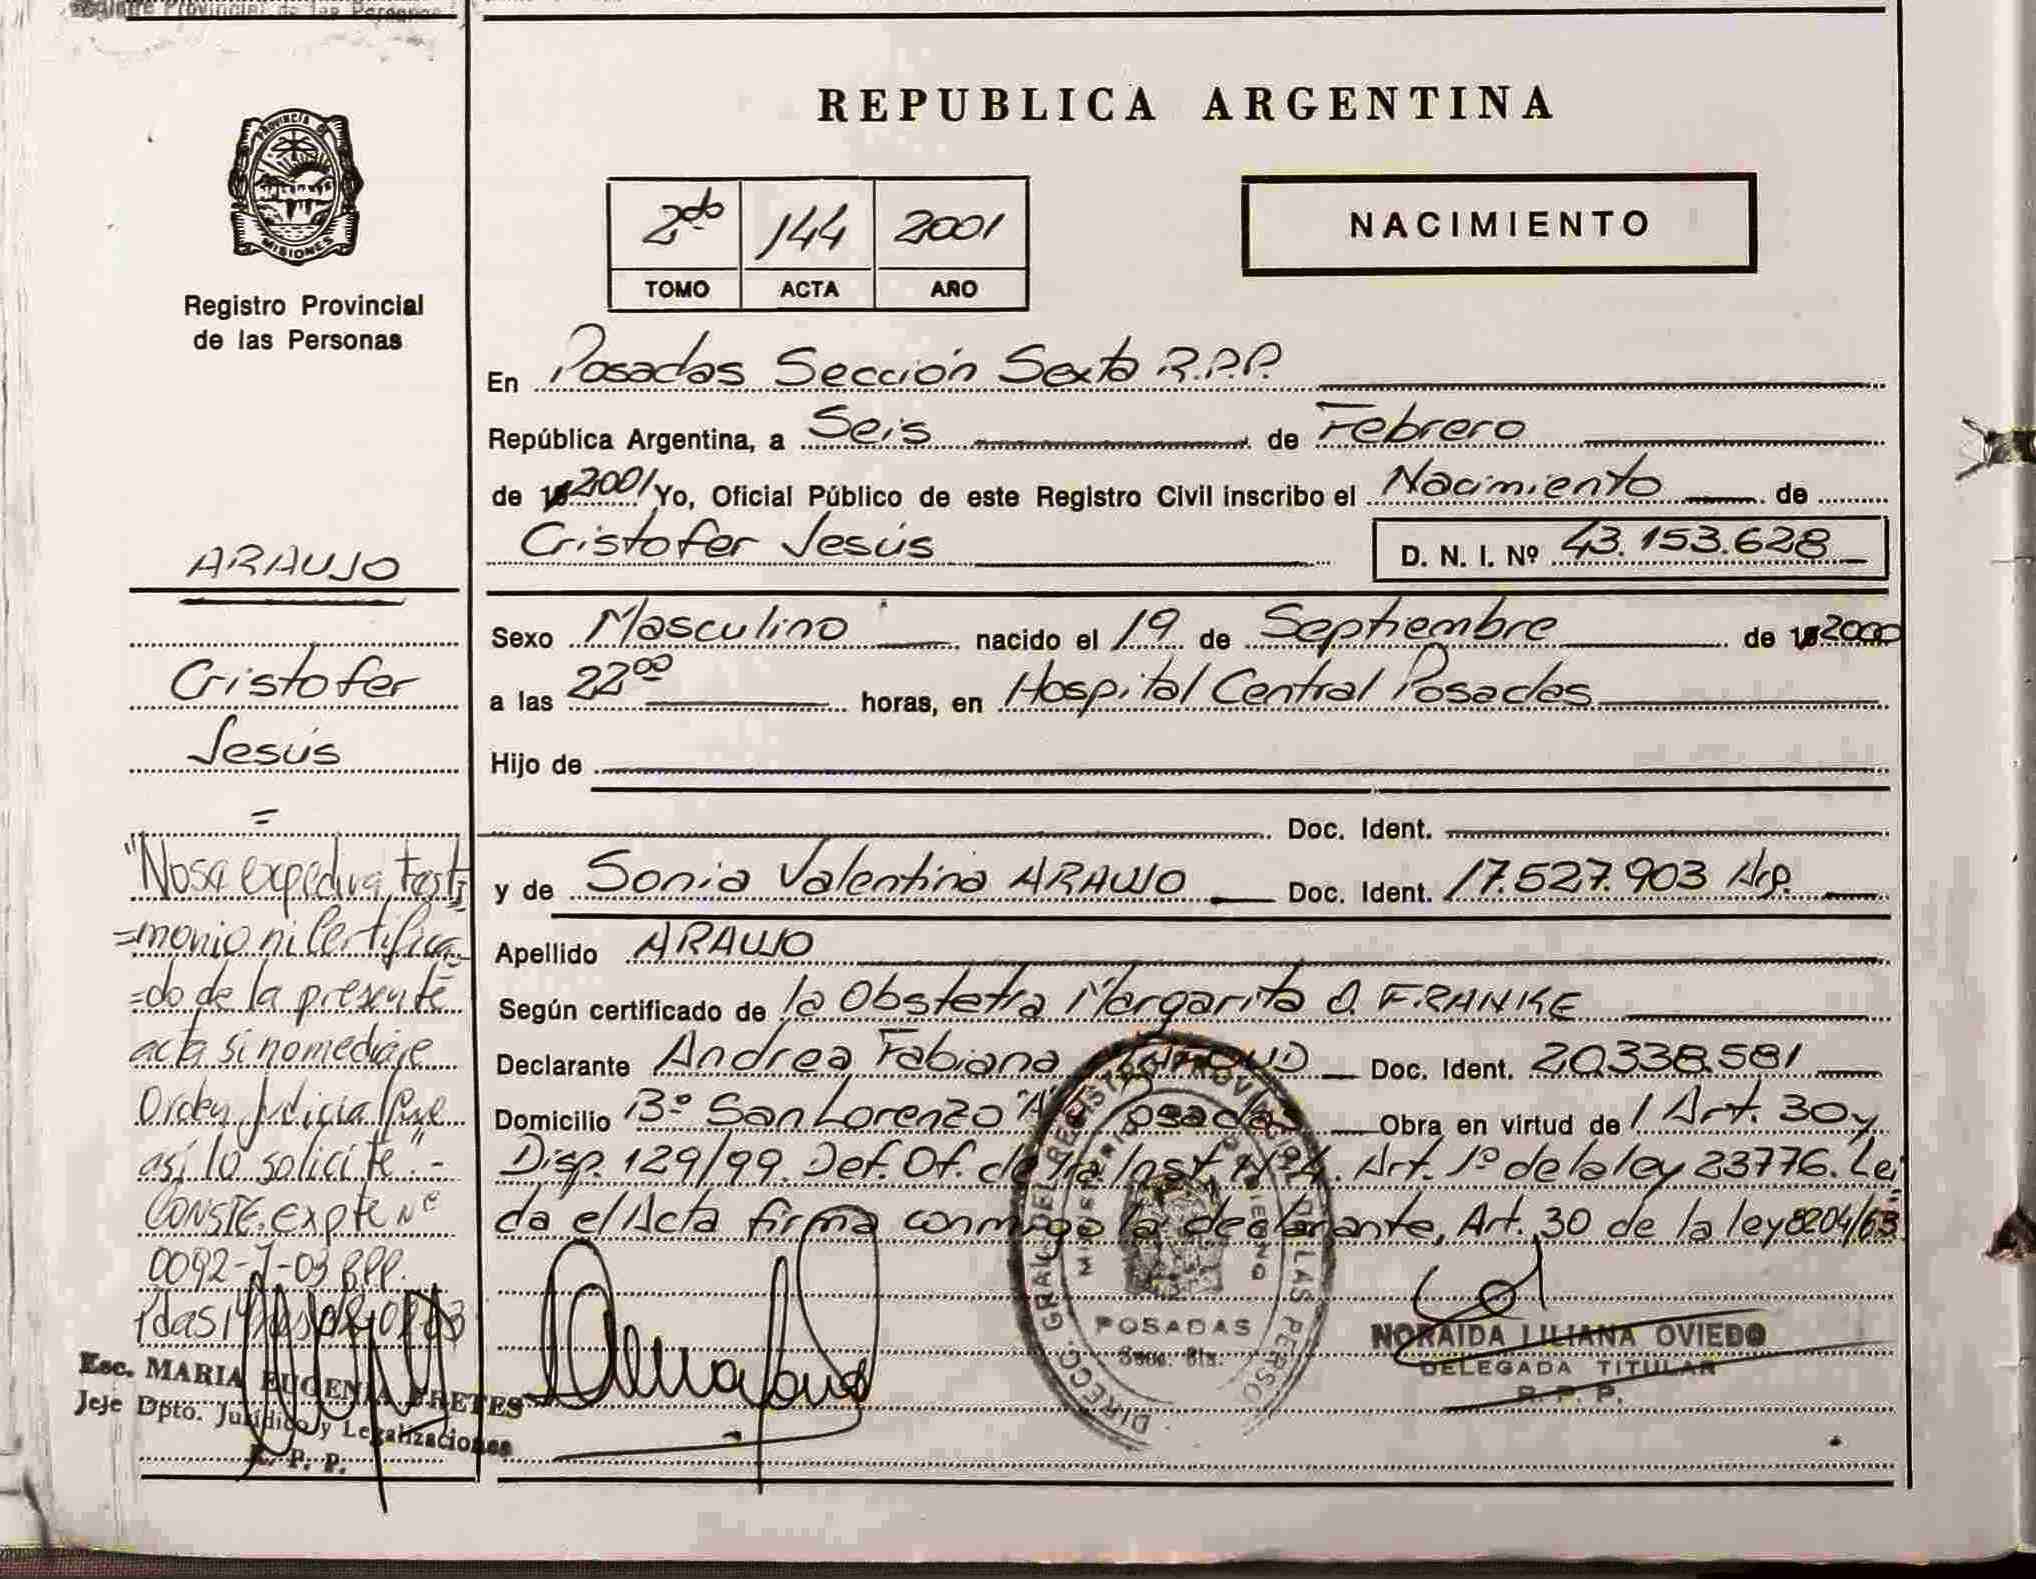 Registro Provincial de las Personas
PROVINCIA DE
MISIONES
Registro Provincial
de las Personas
ARAUJO
Cristofer
Jesús
=
"No se expedirá testi
=monio ni certifica
=do de la presente
acta si no media
Orden Judicial que
así lo solicite".-
CONSTE. expte Nº
0092-J-03 RPP.
Esc. MARIA EUGENIA FRETES
Jefe Dpto. Jurídico y Legalizaciones
R. P. P.
REPUBLICA ARGENTINA
2do 144 2001
TOMO ACTA AÑO
NACIMIENTO
En Posadas Sección Sexta R.P.P.
República Argentina, a Seis de Febrero
de 2001 Yo, Oficial Público de este Registro Civil inscribo el Nacimiento de
Cristofer Jesús D. N. I. Nº 43.153.628
Sexo Masculino nacido el 19 de Septiembre de 2000
a las 22 00 horas, en Hospital Central Posadas
Hijo de
Doc. Ident.
y de Sonia Valentina ARAUJO Doc. Ident. 17.527.903 Arg.
Apellido ARAUJO
Según certificado de la Obstetra Margarita O. FRANKE
Declarante Andrea Fabiana Doc. Ident. 20.338.581
Domicilio Bº San Lorenzo "A" Posadas Obra en virtud de 1 Art. 30 y
Disp. 129/99. Def. Of. de 1ra. Inst. Nº 4. Art. 1º de la ley 23776. Lei
da el Acta firma conmigo la declarante, Art. 30 de la ley 8204/63
DIRECC. GRAL. DEL REGISTRO PROVINCIAL DE LAS PERSONAS
MINISTERIO DE GOBIERNO
POSADAS
NORAIDA LILIANA OVIEDO
DELEGADA TITULAR
R. P. P.